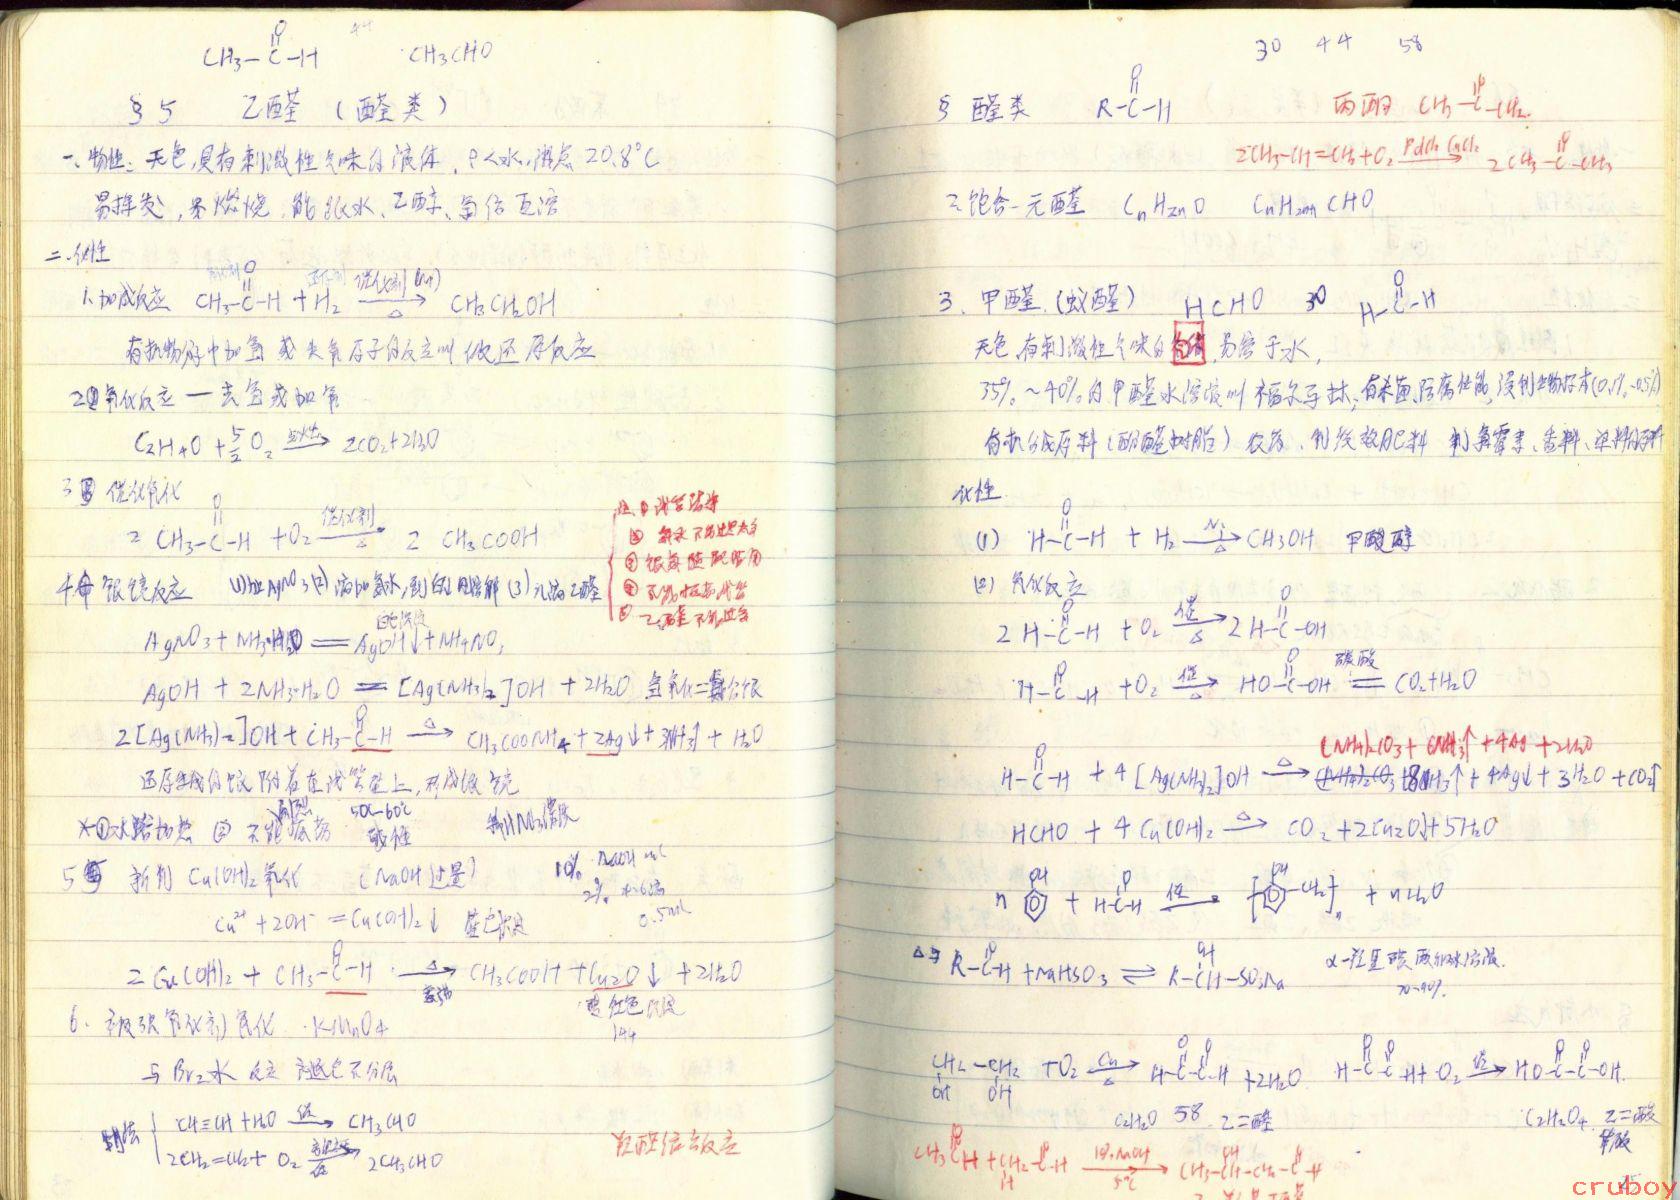 CH3-C-H
O
44
CH3CHO
§5 乙醛 (醛类)
一、物性: 无色,具有刺激性气味的液体, ρ<水,沸点20.8°C
易挥发, 易燃烧, 能跟水、乙醇、氯仿互溶
二、化性
1.加成反应 CH3-C-H + H2 催化剂(Ni) △ → CH3CH2OH
O
有机物分子中加氢或失氧原子的反应叫做还原反应
2 氧化反应 — 去氢或加氧
C2H4O + 5/2 O2 点燃 → 2CO2+2H2O
3 催化氧化
2 CH3-C-H +O2 催化剂 △ → 2 CH3COOH
O
4 银镜反应
AgNO3 + NH3·H2O = AgOH↓ + NH4NO3
白色沉淀
AgOH + 2NH3·H2O = [Ag(NH3)2]OH + 2H2O 氢氧化二氨合银
2[Ag(NH3)2]OH + CH3-C-H △ → CH3COONH4 + 2Ag↓ + 3NH3↑ + H2O
O
还原生成的银附着在试管壁上,形成银镜
①水浴加热 ②不能振荡
50~60℃
碱性
5 新制 Cu(OH)2氧化 (NaOH过量)
10% NaOH
2%
0.5ml
Cu2+ + 2OH- = Cu(OH)2↓ 蓝色沉淀
2Cu(OH)2 + CH3-C-H △ → CH3COOH + Cu2O↓ + 2H2O
O
砖红色沉淀
144
6. 被强氧化剂氧化 KMnO4
与Br2水 反应 褪色不分层
制法
CH≡CH + H2O 催 → CH3CHO
2CH2=CH2 + O2 → 2CH3CHO
羟醛缩合反应
30 44 58
§ 醛类 R-C-H
O
丙酮 CH3-C-CH3
O
2CH3-CH=CH2+O2 PdCl2 CuCl2 → 2CH3-C-CH3
O
2.饱合一元醛 CnH2nO CnH2n+1CHO
3. 甲醛 (蚁醛) HCHO 30 H-C-H
O
无色,有刺激性气味的气体,易溶于水,
35%~40%的甲醛水溶液叫福尔马林;有杀菌、防腐性能,浸制生物标本(0.1%~0.5%)
有机合成原料(酚醛树脂) 农药、制缓效肥料 制氯霉素、香料、染料的原料
化性
(1) H-C-H + H2 Ni △ → CH3OH 甲醇
O
(2) 氧化反应
2H-C-H + O2 催 △ → 2H-C-OH
O O
H-C-H +O2 催 △ → HO-C-OH = CO2+H2O
O O
碳酸
(NH4)2CO3 + 6NH3↑ + 4Ag + 2H2O
H-C-H + 4[Ag(NH3)2]OH △ → 8NH3↑ + 4Ag↓ + 3H2O + CO2↑
O
HCHO + 4Cu(OH)2 △ → CO2 + 2Cu2O↓ + 5H2O
n OH + H-C-H 催 → [ OH -CH2 ]n + nH2O
O
△与 R-C-H + NaHSO3 ⇌ R-CH-SO3Na
O OH
α-羟基磺酸钠
CH2-CH2 +O2 Cu △ → H-C-C-H +2H2O
OH OH O O
H-C-C-H + O2 催 → HO-C-C-OH
O O O O
C2H2O2 58 乙二醛
C2H2O4 乙二酸
草酸
CH3-C-H + CH2-C-H 10%NaOH 5℃ → CH3-CH-CH2-C-H
O H O OH O
cruboy